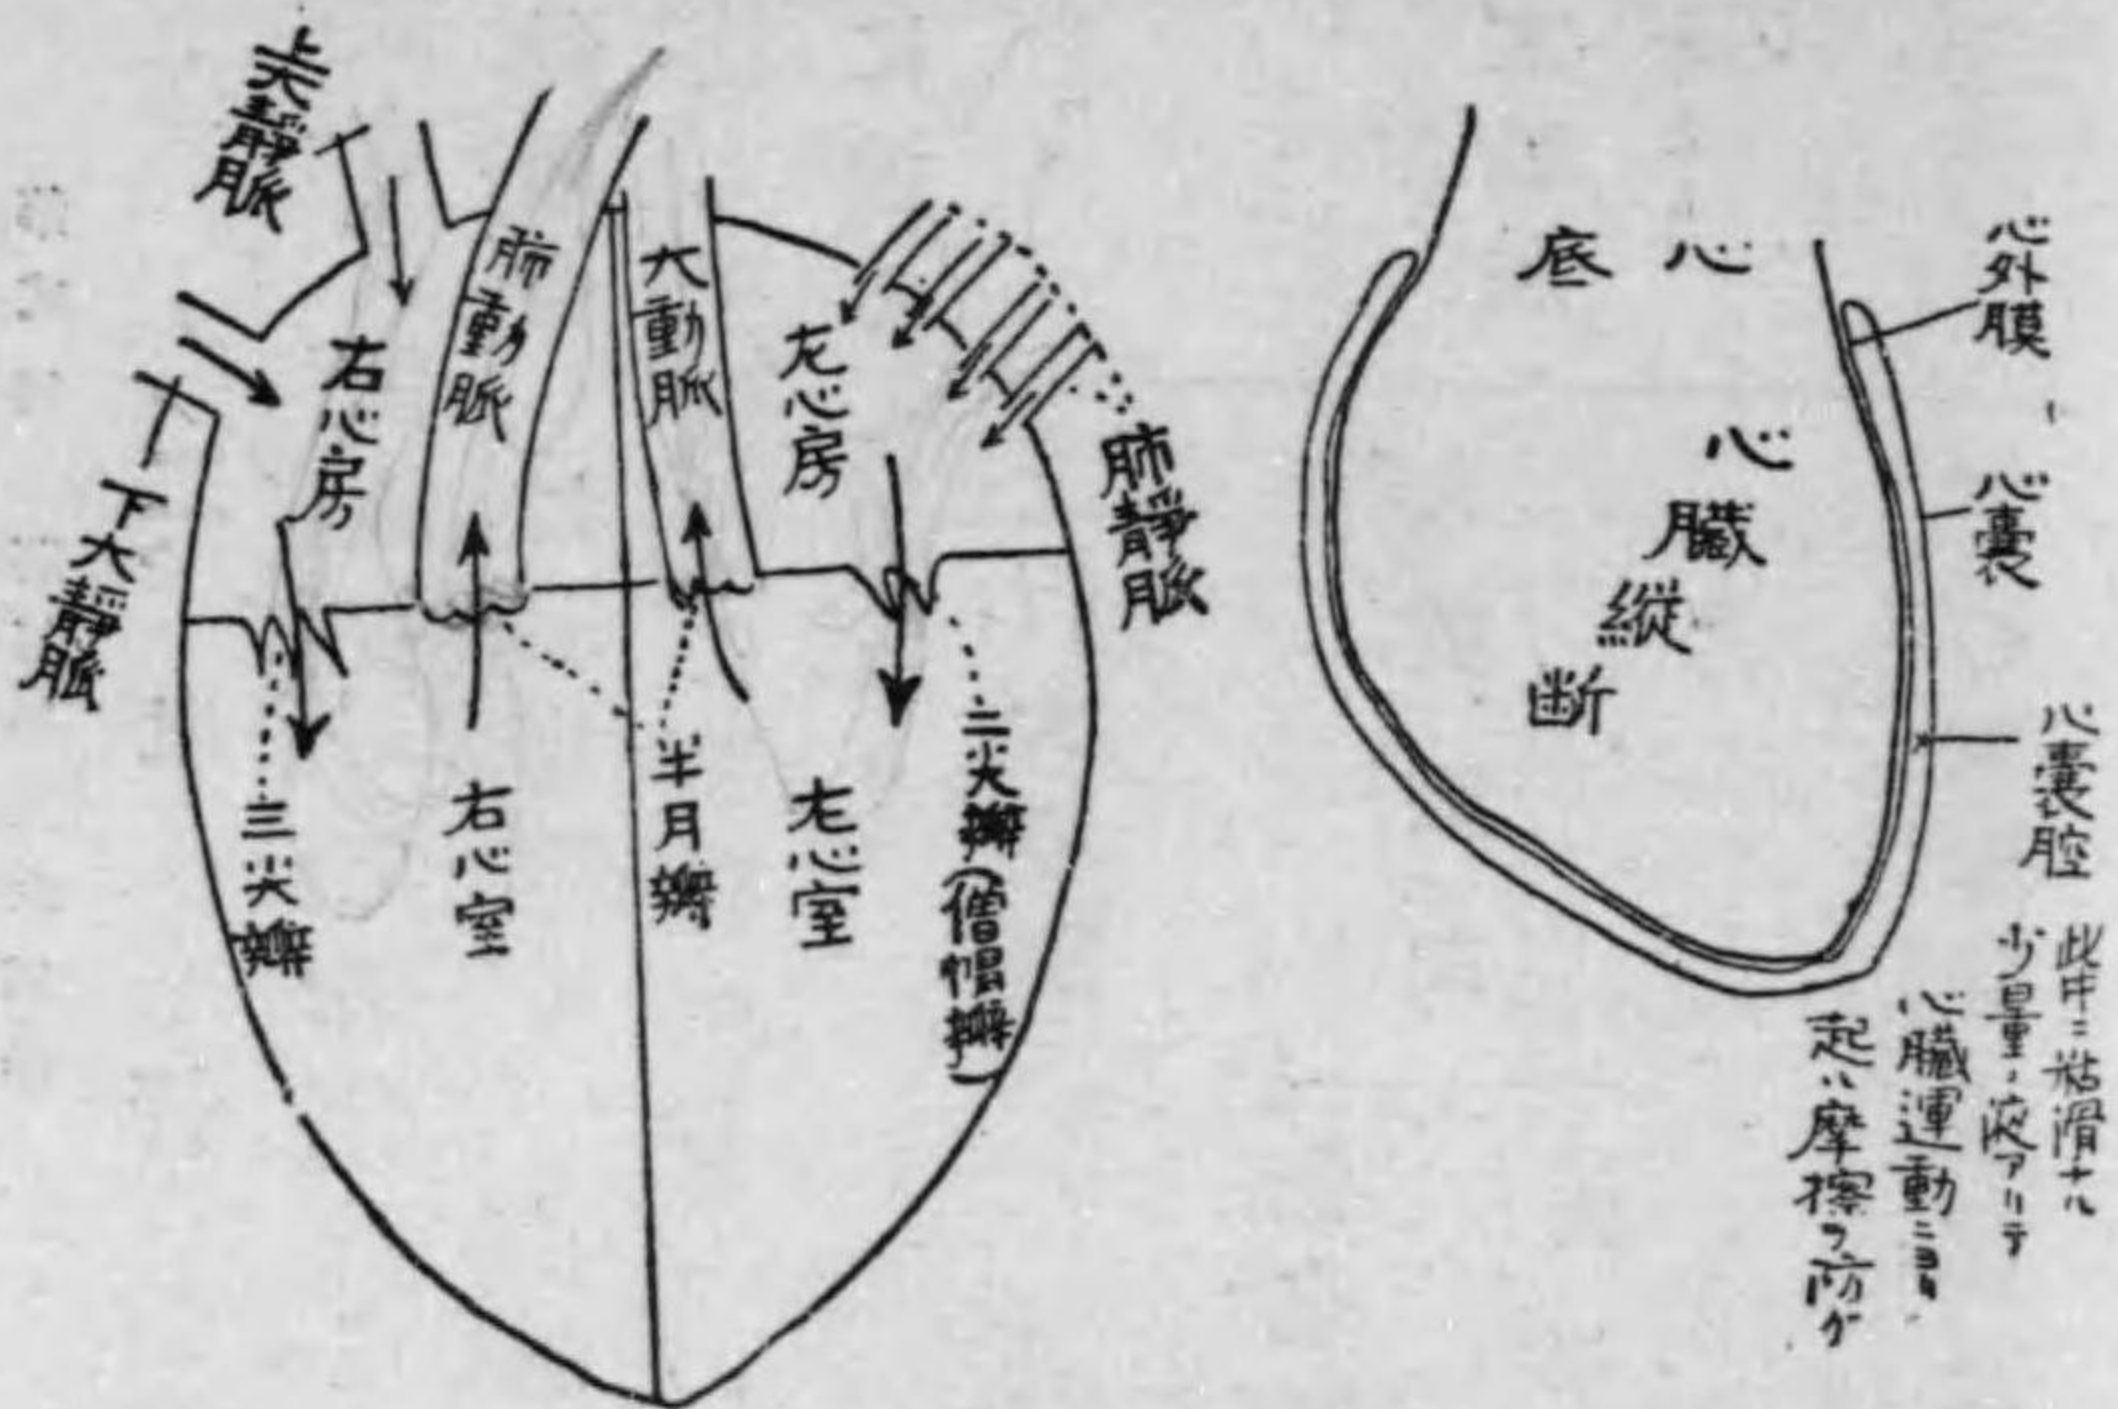 上大靜脈
下大靜脈
右心房
肺動脈
大動脈
左心房
肺靜脈
三尖瓣
右心室
半月瓣
左心室
二尖瓣(僧帽瓣)
心底
心臓縦断
心外膜
心嚢
心嚢腔
此中ニ粘滑ナル
少量ノ液アリテ
心臓運動ニヨリ
起ル摩擦ヲ防グ